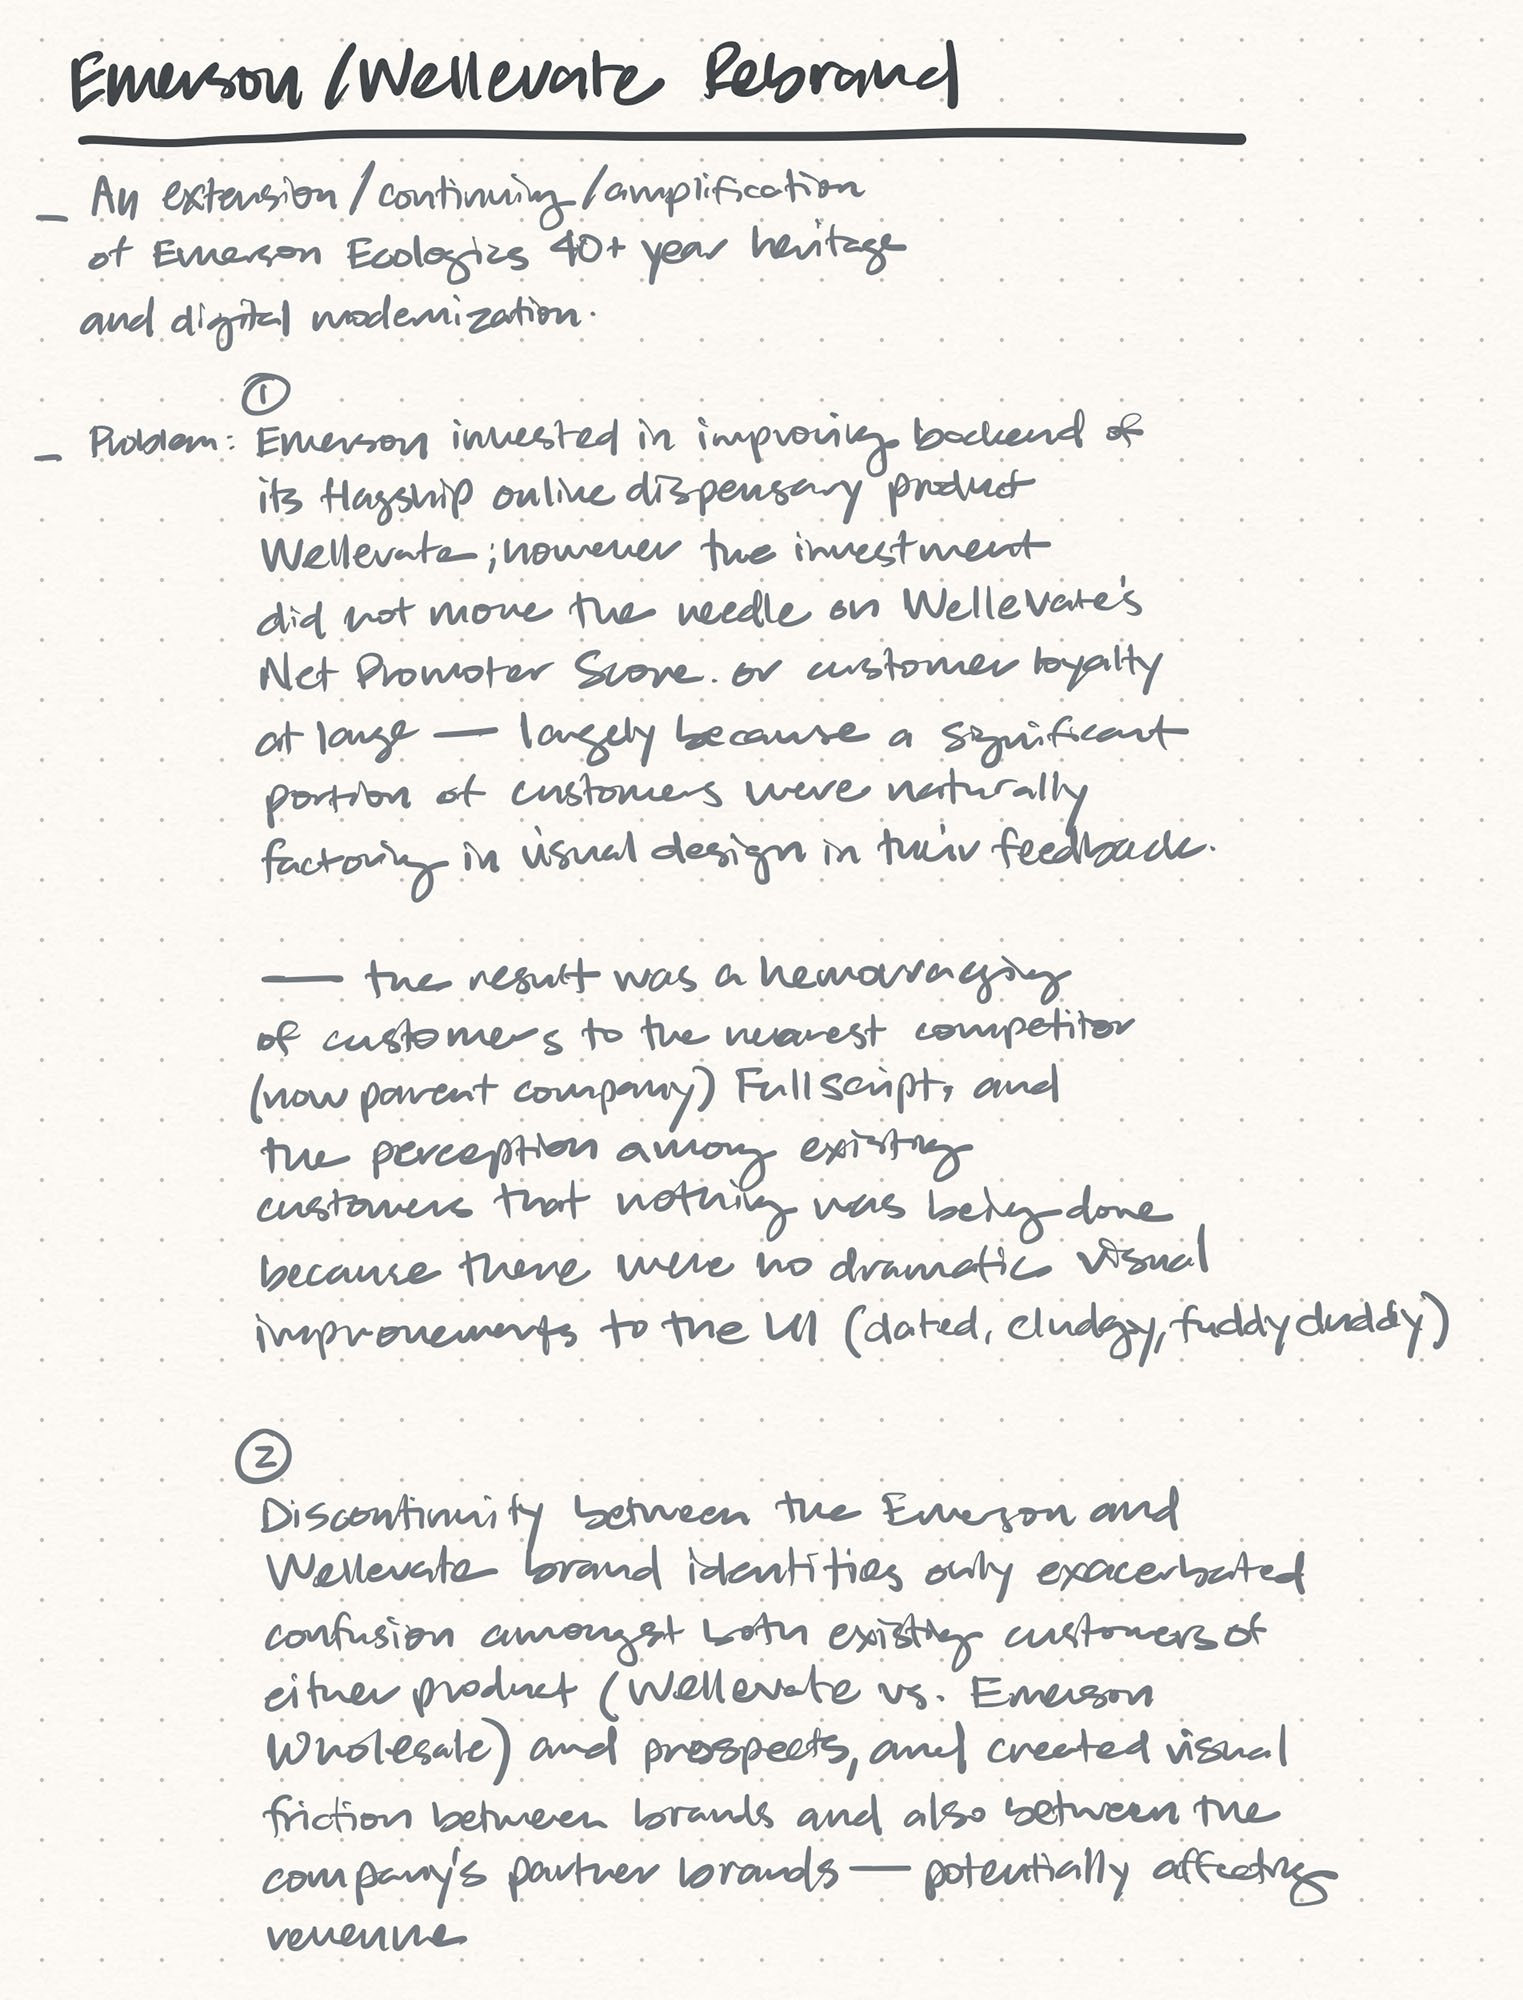 Emerson/Wellevate Rebrand
— An extension/continuing/amplification
of Emerson Ecologics 40+ year heritage
and digital modernization.
①
— Problem: Emerson invested in improving backend of
its flagship online dispensary product
Wellevate; however the investment
did not move the needle on Wellevate's
Net Promoter Score. or customer loyalty
at large — largely because a significant
portion of customers were naturally
factoring in visual design in their feedback.
— the result was a hemorraging
of customers to the nearest competitor
(now parent company) Fullscript, and
the perception among existing
customers that nothing was being done
because there were no dramatic visual
improvements to the UI (dated, cludgy, fuddy duddy)
②
Discontinuity between the Emerson and
Wellevate brand identities only exacerbated
confusion amongst both existing customers of
either product (Wellevate vs. Emerson
Wholesale) and prospects, and created visual
friction between brands and also between the
company's partner brands — potentially affecting
revenue